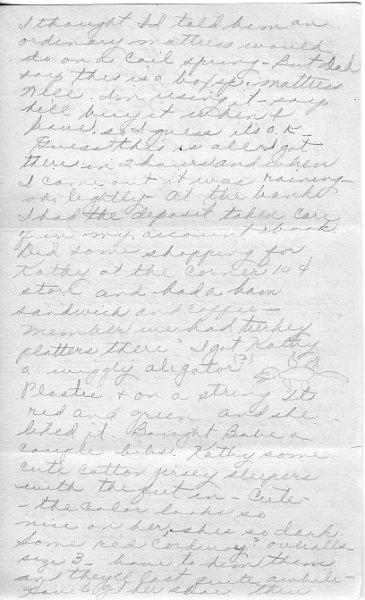 I thought I'd told him an
ordinary mattress would
do on a coil spring - But Dad
say this is a box sp. mattress
Well I'm using it - say
he'll buy it when I
leave. so I guess its O.K -
Guess this is all I got
there in 2 hours and when
I came out it was raining -
oh, lightly - At the bank
I had the deposit taken care
of in my account book
Did some shopping for
Kathy at the corner 10¢
store and had a ham
sandwich and coffee -
Member we had turkey
platters there" I got Kathy
a wiggly aligator(?)
Plastic & on a string Its
red and green and she
liked it. Bought Babe a
couple bibs. Kathy some
cute cotton jersey sleepers
with the feet in - Cute -
- the color looks so
nice on her, shes so dark
Some red corduroy? overalls -
size 3 - have to hem them
and they'll last quite awhile -
Have her shoe thru